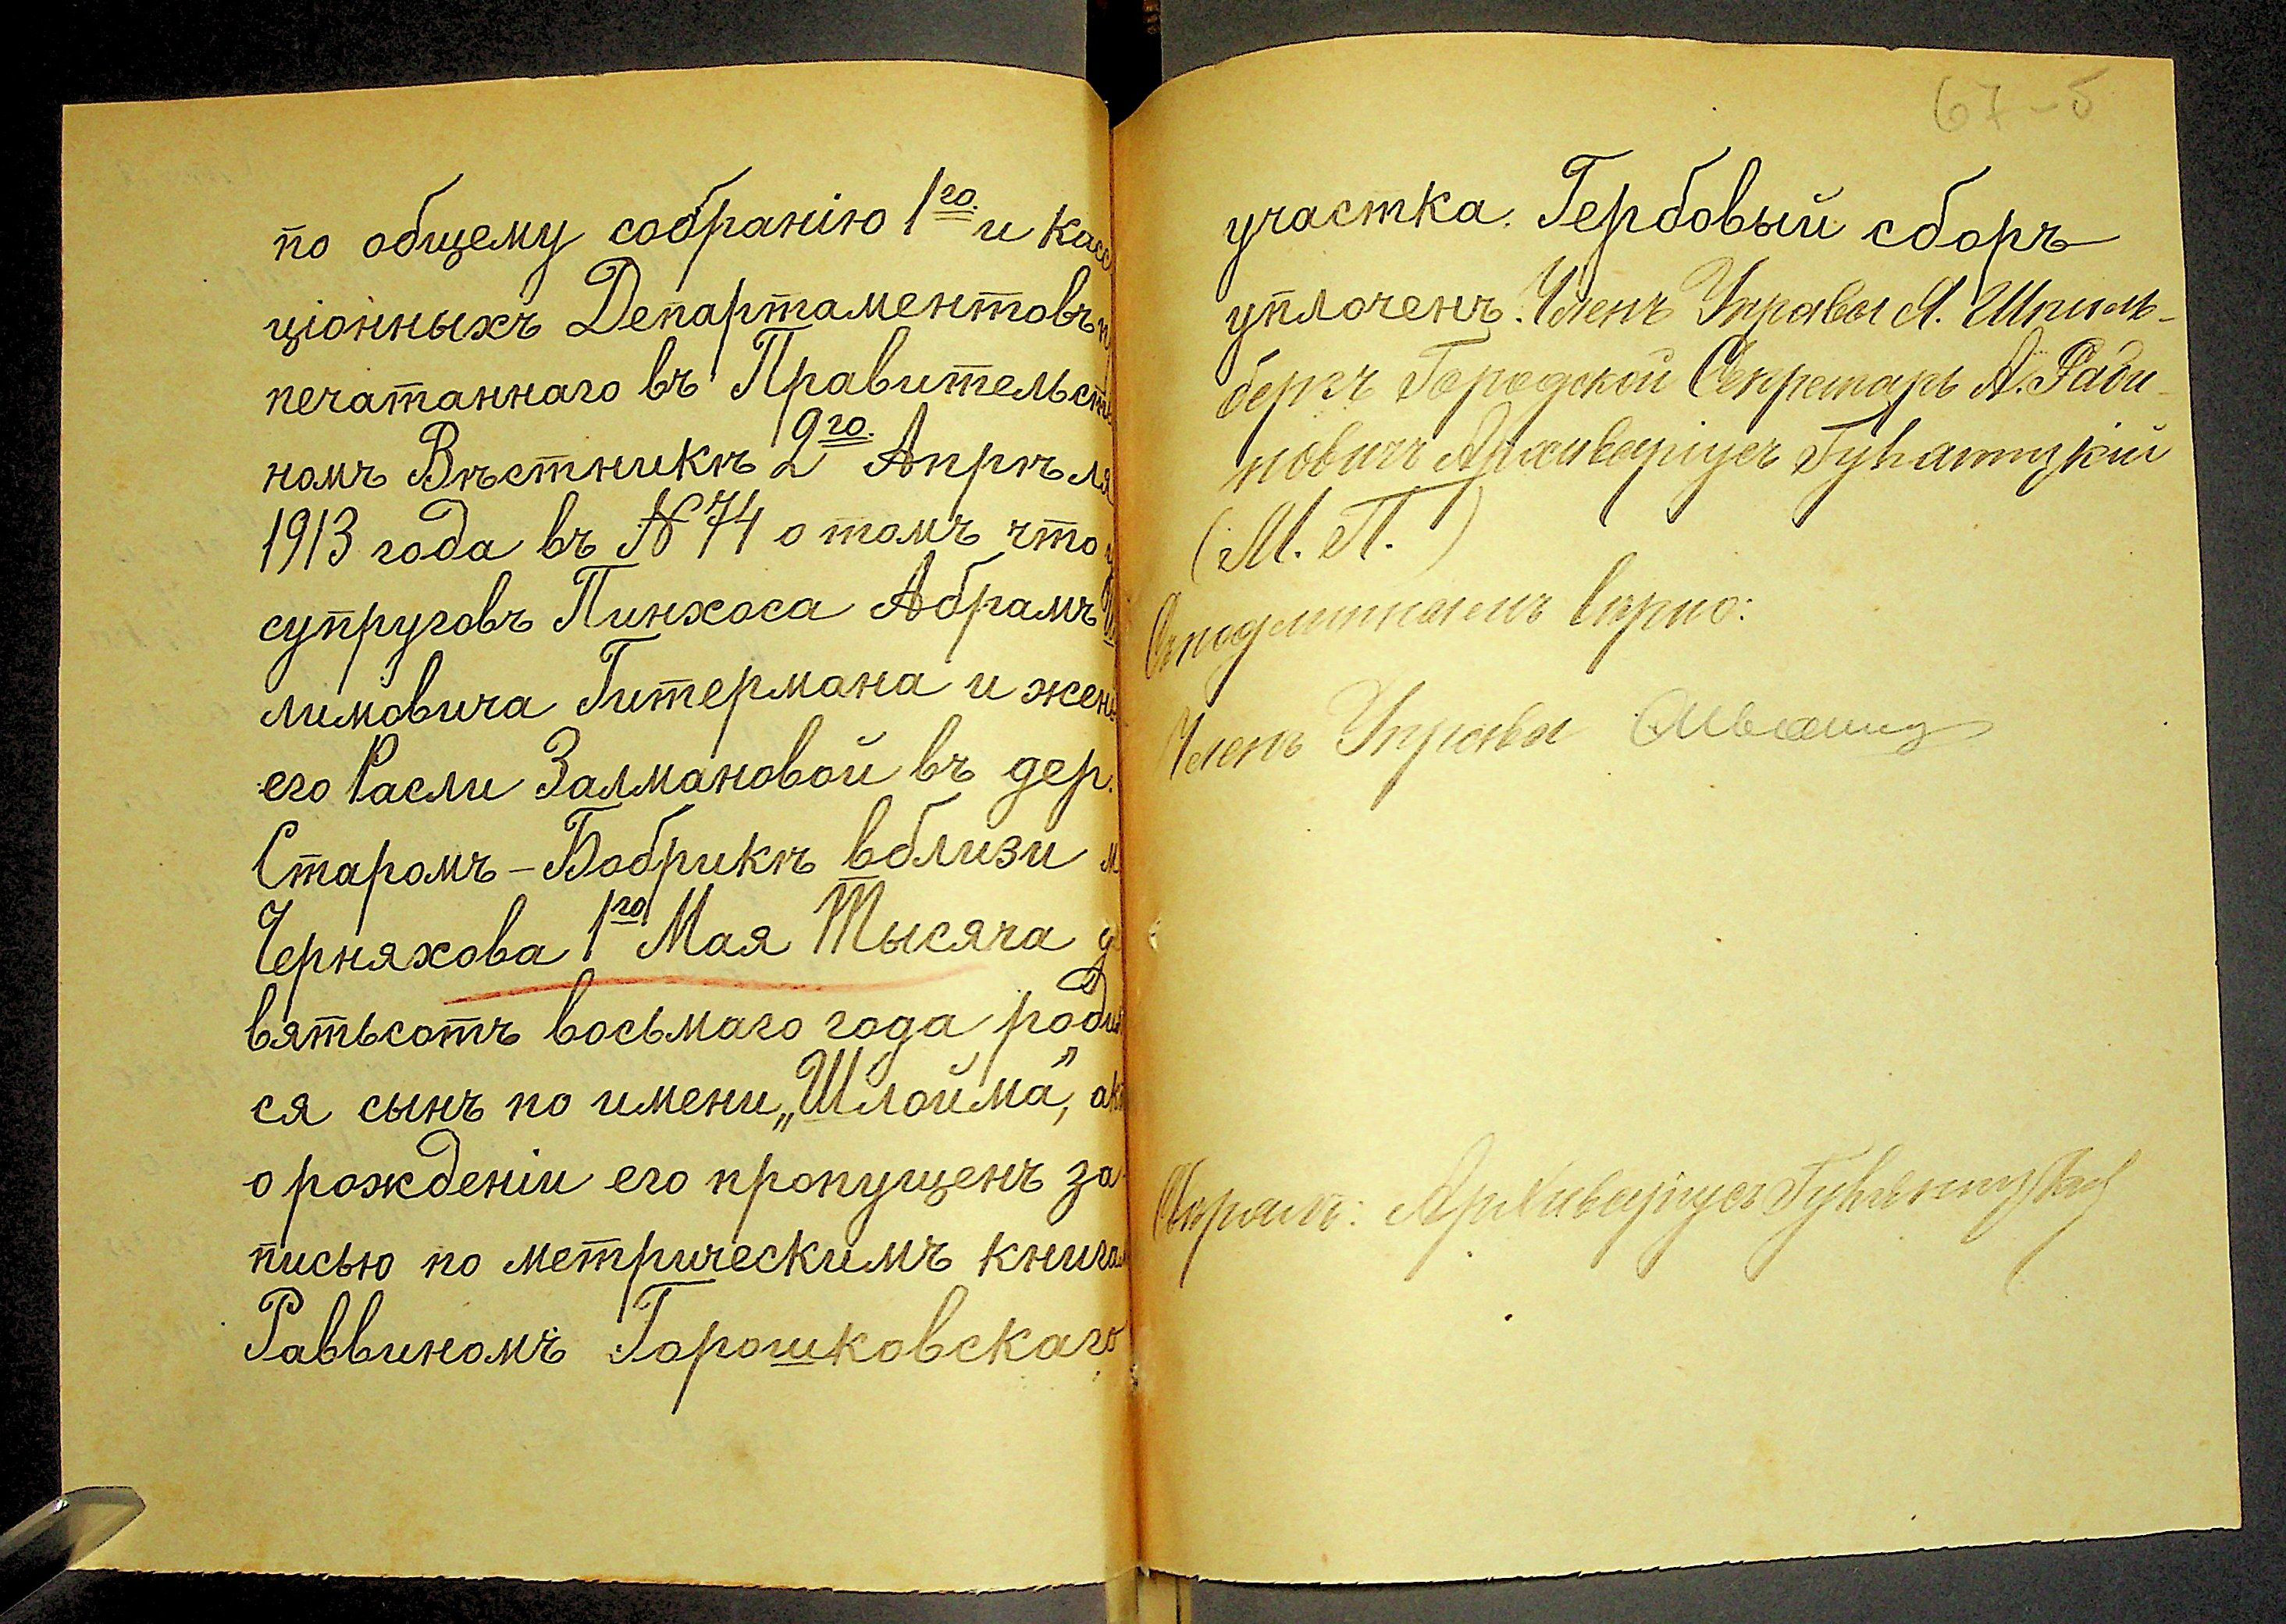 по общему собранію 1го. и касс
ціонныхъ Департаментовъ
печатаннаго въ Правительств
номъ Вѣстникѣ 2го. Апрѣля
1913 года въ № 74 о томъ что
супруговъ Пинхоса Абрамъ
лимовича Гитермана и жен
его Расли Залмановой въ дер.
Старомъ-Бобрикѣ вблизи м
Черняхова 1го Мая Тысяча д
вятьсотъ восьмаго года родил
ся сынъ по имени „Шлойма”, ак
о рожденіи его пропущенъ за
писью по метрическимъ книгам
Раввиномъ Горошковскаго
67-5
участка. Гербовый сборъ
уплоченъ. Членъ Управы Шпиль-
бергъ Городской Секретарь А. Раби-
новичъ Архиваріусъ
(М. П.)
Съ подлиннымъ вѣрно:
Членъ Управы
Архиваріусъ